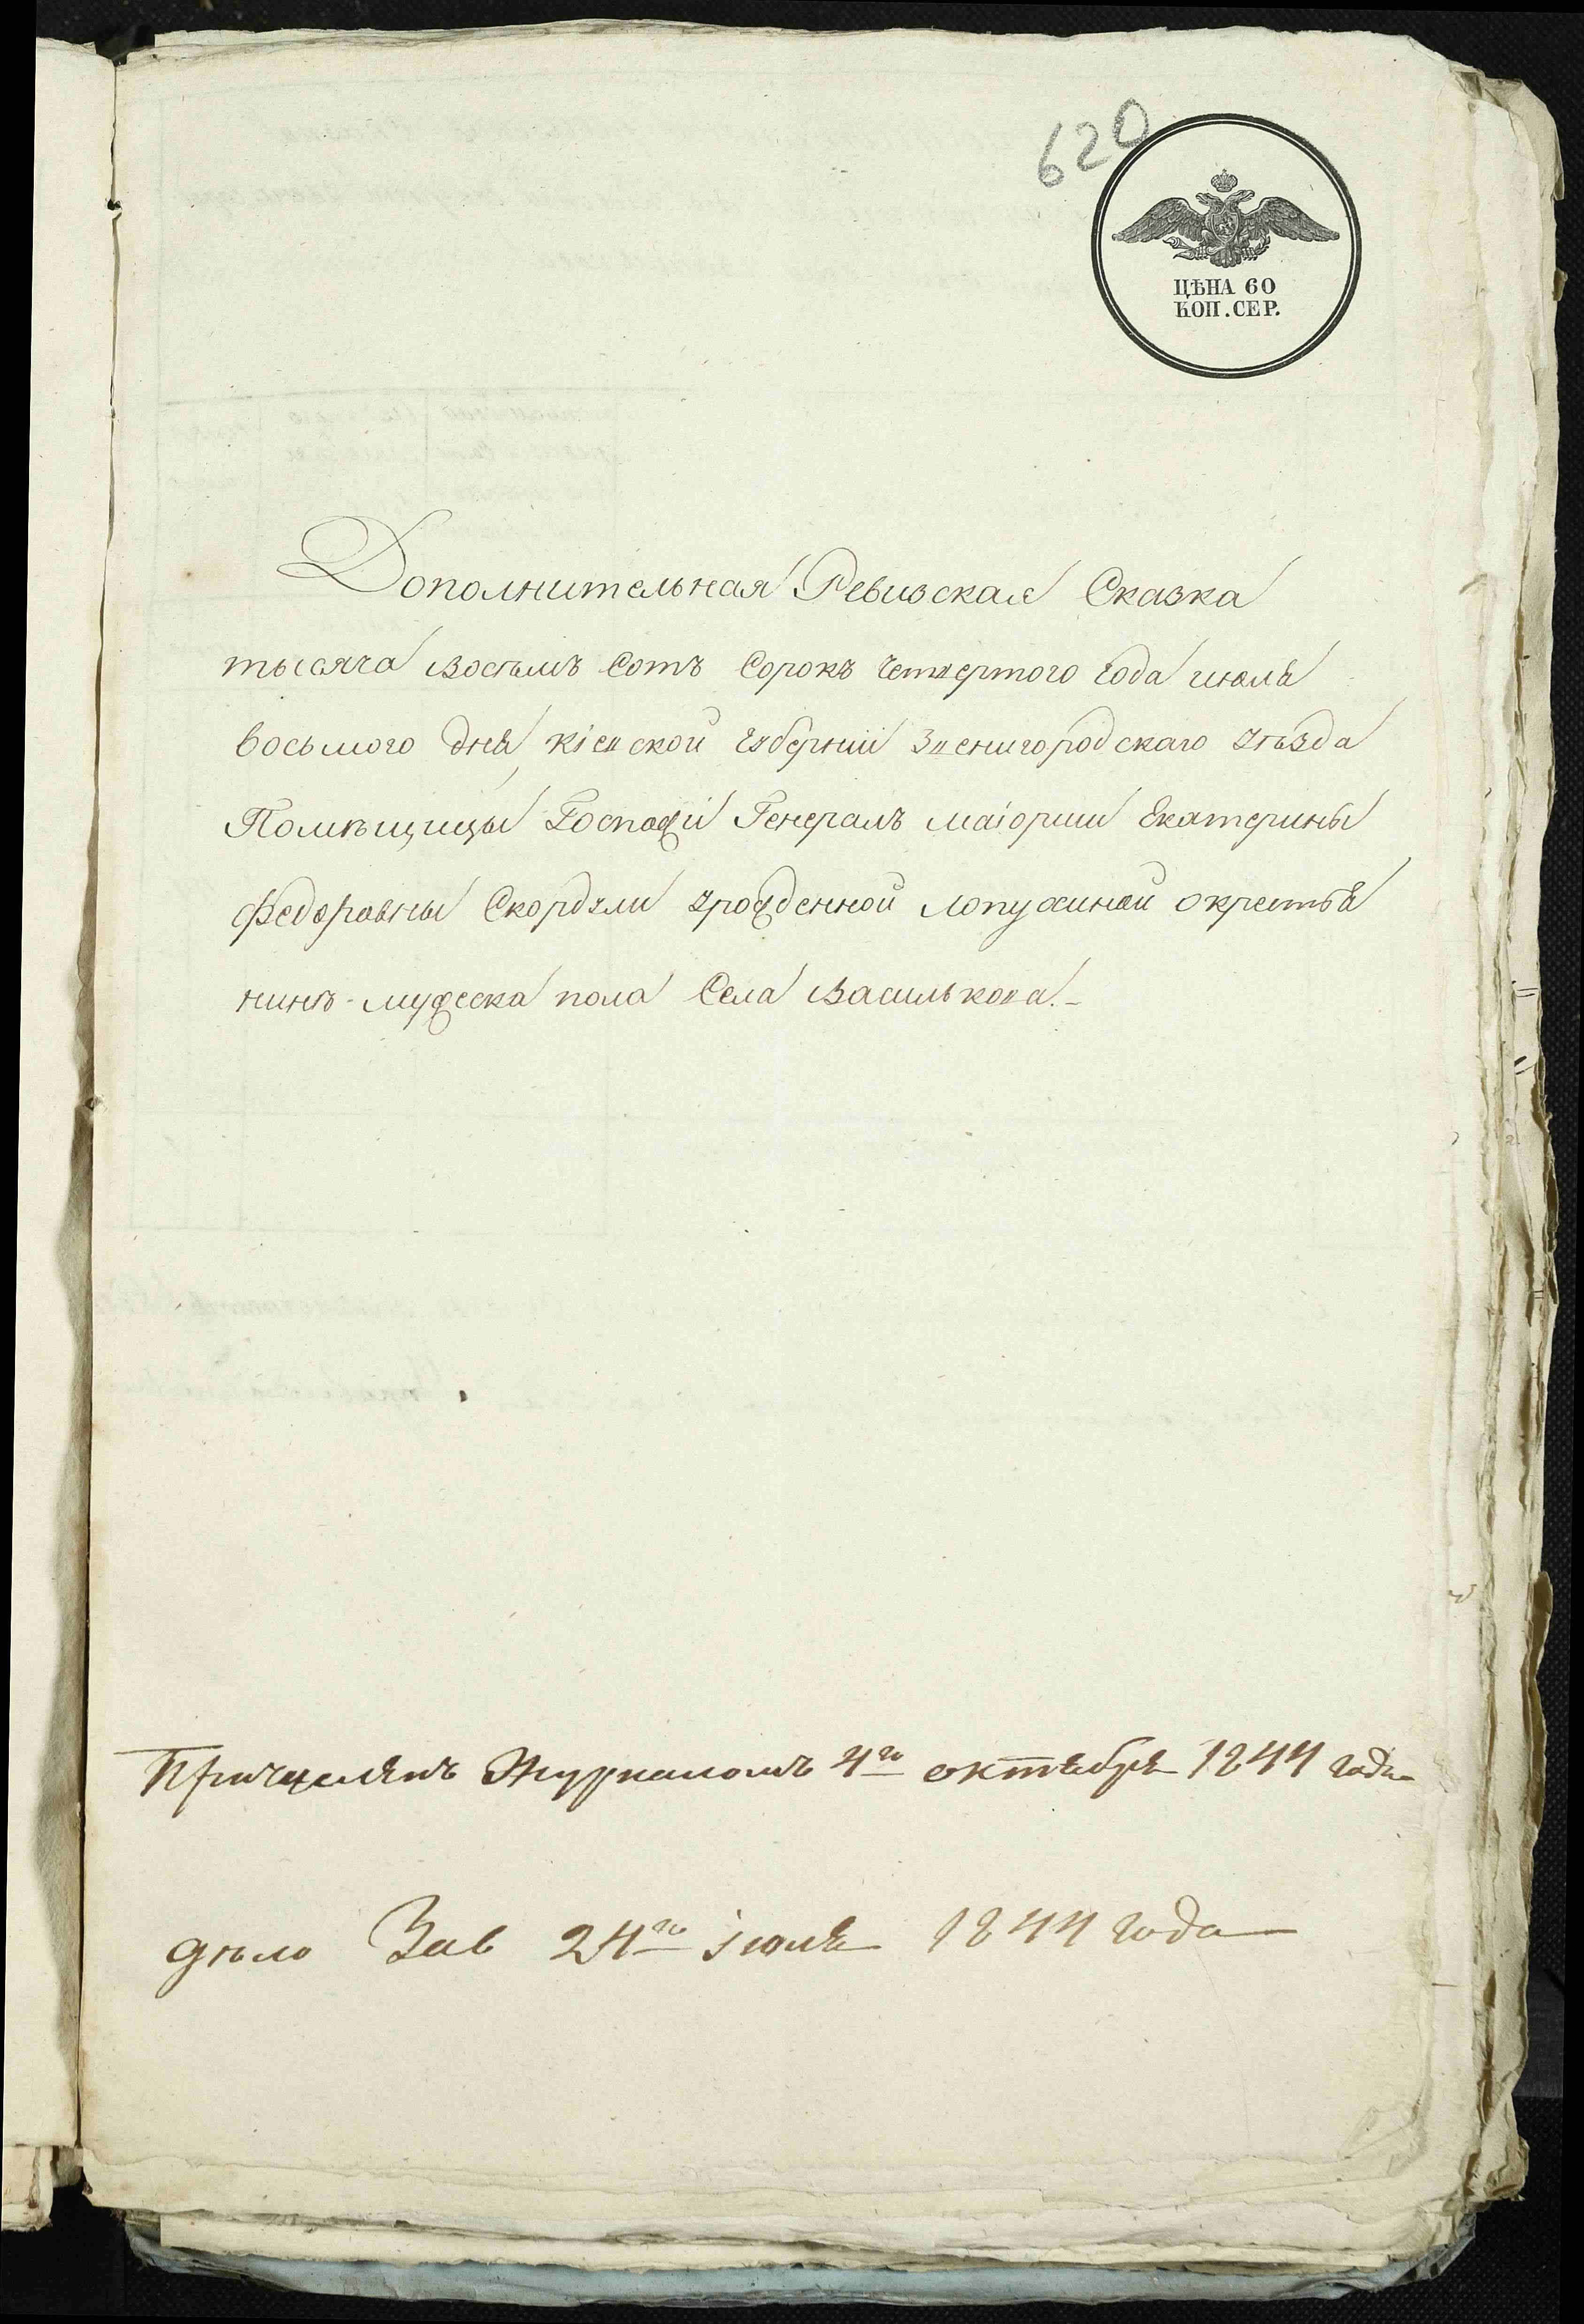 620
ЦѢНА 60
КОП. СЕР.
Дополнительная Ревизская Сказка
тысяча восемъ Сотъ Сорокъ Четвертого Года июля
восьмого дня, кіевской Губерніи Звенигородскаго Уѣзда
Помѣщицы Госпожи Генералъ Маіорши Екатерины
Федоровны Скордули Урожденной Лопухиной окрестья
нинѣ мужеска пола Села Василькова.-
Причисленъ Журналомъ 4го октября 1844 года
дѣло Зав 24го іюля 1844 года